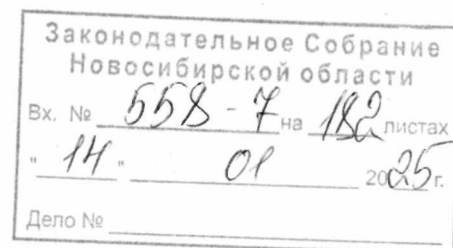 Законодательное Собрание
Новосибирской области
Вх. № 558-7 на 182 листах
"14" 01 2025 г.
Дело №